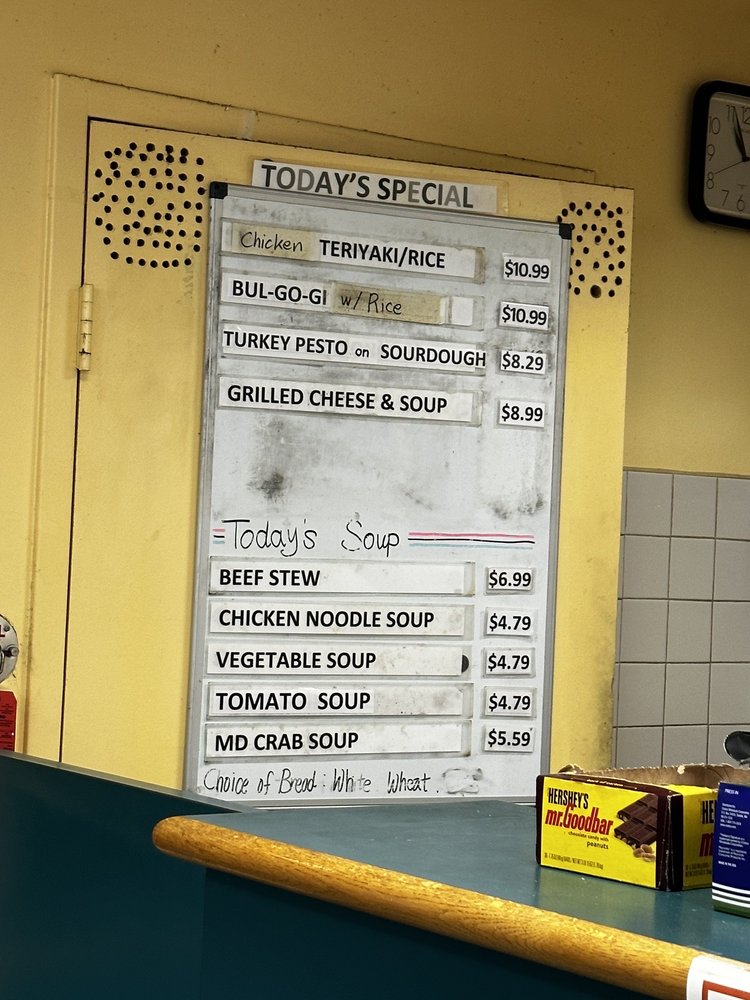 TODAY'S SPECIAL
Chicken TERIYAKI/RICE $10.99
BUL-GO-GI w/ Rice $10.99
TURKEY PESTO on SOURDOUGH $8.29
GRILLED CHEESE & SOUP $8.99
Today's Soup
BEEF STEW $6.99
CHICKEN NOODLE SOUP $4.79
VEGETABLE SOUP $4.79
TOMATO SOUP $4.79
MD CRAB SOUP $5.59
Choice of Bread: White. Wheat.
10
9
8
7
6
12
HERSHEY'S
mr.Goodbar
chocolate candy with
peanuts
PRESS IN